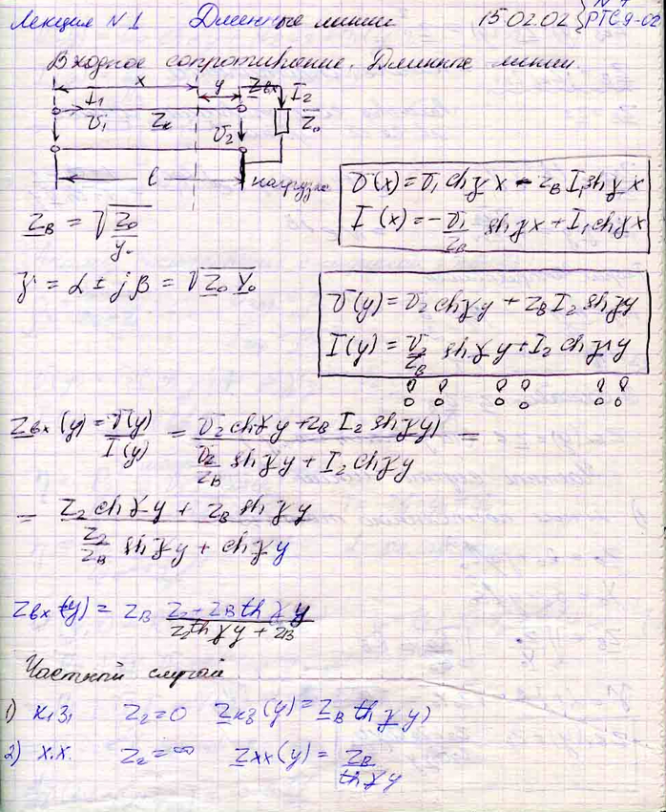 Лекция №1 Длинные линии 15.02.02 РТС9-02
Входное сопротивление. Длинные линии.
x y Zвх
I₁ I₂
U₁ Zв U₂ Z₀
l нагрузка
U(x) = U₁ ch γx - ZвI₁ sh γx
I(x) = -U₁/Zв sh γx + I₁ ch γx
Zв = √(Z₀/Y₀)
γ = α ± jβ = √(Z₀ Y₀)
U(y) = U₂ ch γy + ZвI₂ sh γy
I(y) = U₂/Zв sh γy + I₂ ch γy
Zвх(y) = U(y)/I(y) = (U₂ ch γy + Zв I₂ sh γy)/(U₂/Zв sh γy + I₂ ch γy) =
= (Z₂ ch γy + Zв sh γy)/(Z₂/Zв sh γy + ch γy)
Zвх(y) = Zв (Z₂ + Zв th γy)/(Z₂ th γy + Zв)
Частный случай
1) к.з. Z₂ = 0 Zкз(y) = Zв th γy
2) х.х. Z₂ = ∞ Zхх(y) = Zв/th γy